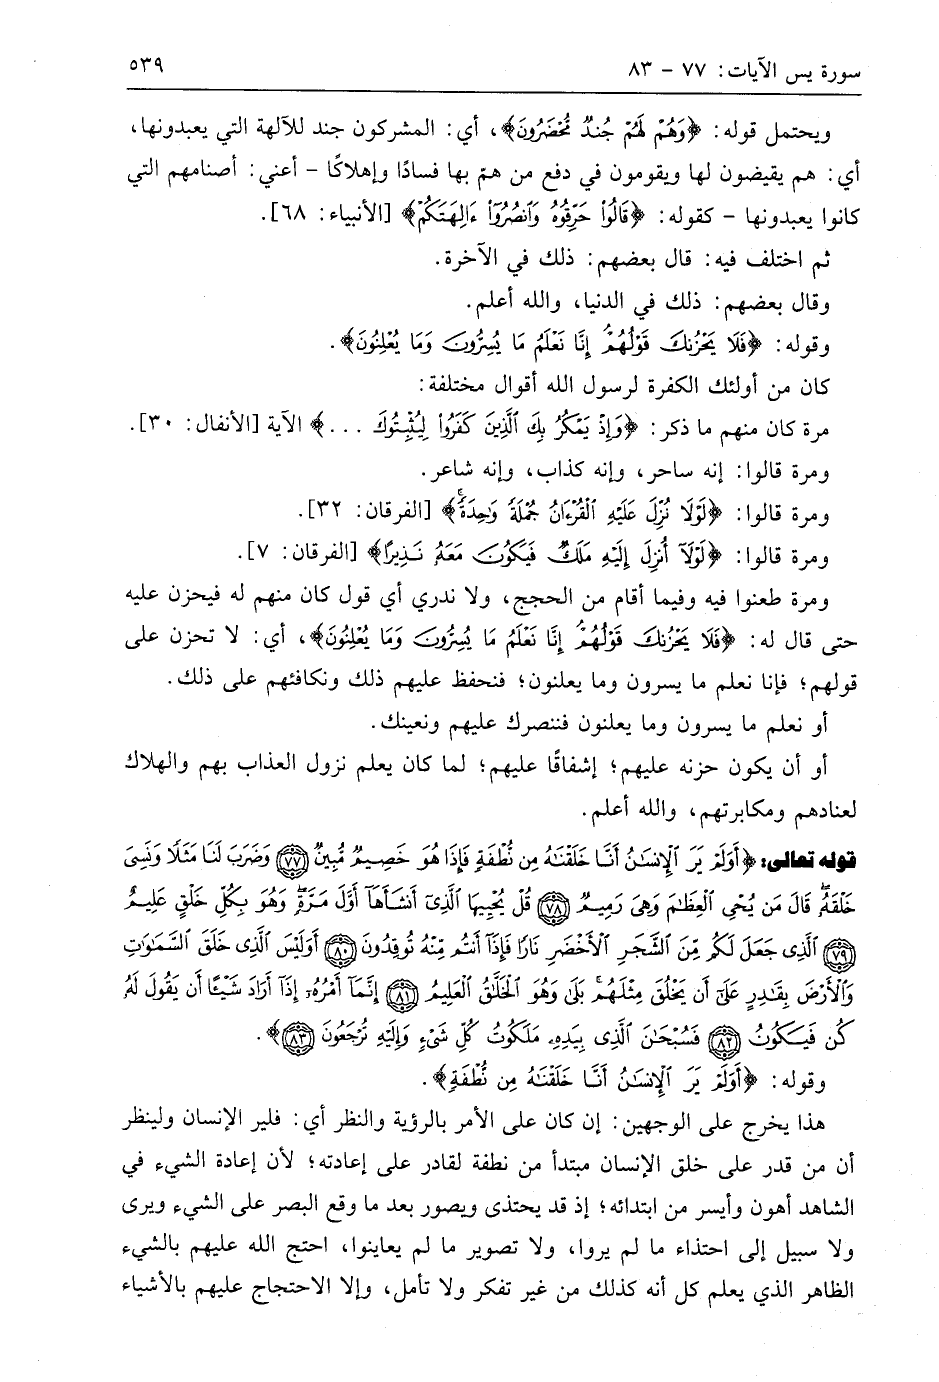 سورة يس الآيات: ٧٧ - ٨٣
٥٣٩
ويحتمل قوله: ﴿وَهُمْ لَهُمْ جُندٌ مُّحْضَرُونَ﴾، أي: المشركون جند للآلهة التي يعبدونها،
أي: هم يقيضون لها ويقومون في دفع من همّ بها فسادًا وإهلاكًا - أعني: أصنامهم التي
كانوا يعبدونها - كقوله: ﴿قَالُوا۟ حَرِّقُوهُ وَٱنصُرُوٓا۟ ءَالِهَتَكُمْ﴾ [الأنبياء: ٦٨].
ثم اختلف فيه: قال بعضهم: ذلك في الآخرة.
وقال بعضهم: ذلك في الدنيا، والله أعلم.
وقوله: ﴿فَلَا يَحْزُنكَ قَوْلُهُمْ ۘ إِنَّا نَعْلَمُ مَا يُسِرُّونَ وَمَا يُعْلِنُونَ﴾.
كان من أولئك الكفرة لرسول الله أقوال مختلفة:
مرة كان منهم ما ذكر: ﴿وَإِذْ يَمْكُرُ بِكَ ٱلَّذِينَ كَفَرُوا۟ لِيُثْبِتُوكَ ...﴾ الآية [الأنفال: ٣٠].
ومرة قالوا: إنه ساحر، وإنه كذاب، وإنه شاعر.
ومرة قالوا: ﴿لَوْلَا نُزِّلَ عَلَيْهِ ٱلْقُرْءَانُ جُمْلَةً وَٰحِدَةً ۚ﴾ [الفرقان: ٣٢].
ومرة قالوا: ﴿لَوْلَآ أُنزِلَ إِلَيْهِ مَلَكٌ فَيَكُونَ مَعَهُۥ نَذِيرًا﴾ [الفرقان: ٧].
ومرة طعنوا فيه وفيما أقام من الحجج، ولا ندري أي قول كان منهم له فيحزن عليه
حتى قال له: ﴿فَلَا يَحْزُنكَ قَوْلُهُمْ ۘ إِنَّا نَعْلَمُ مَا يُسِرُّونَ وَمَا يُعْلِنُونَ﴾، أي: لا تحزن على
قولهم؛ فإنا نعلم ما يسرون وما يعلنون؛ فنحفظ عليهم ذلك ونكافئهم على ذلك.
أو نعلم ما يسرون وما يعلنون فننصرك عليهم ونعينك.
أو أن يكون حزنه عليهم؛ إشفاقًا عليهم؛ لما كان يعلم نزول العذاب بهم والهلاك
لعنادهم ومكابرتهم، والله أعلم.
قوله تعالى: ﴿أَوَلَمْ يَرَ ٱلْإِنسَٰنُ أَنَّا خَلَقْنَٰهُ مِن نُّطْفَةٍ فَإِذَا هُوَ خَصِيمٌ مُّبِينٌ ٧٧ وَضَرَبَ لَنَا مَثَلًا وَنَسِىَ
خَلْقَهُۥ ۖ قَالَ مَن يُحْىِ ٱلْعِظَٰمَ وَهِىَ رَمِيمٌ ٧٨ قُلْ يُحْيِيهَا ٱلَّذِىٓ أَنشَأَهَآ أَوَّلَ مَرَّةٍ ۖ وَهُوَ بِكُلِّ خَلْقٍ عَلِيمٌ
٧٩ ٱلَّذِى جَعَلَ لَكُم مِّنَ ٱلشَّجَرِ ٱلْأَخْضَرِ نَارًا فَإِذَآ أَنتُم مِّنْهُ تُوقِدُونَ ٨٠ أَوَلَيْسَ ٱلَّذِى خَلَقَ ٱلسَّمَٰوَٰتِ
وَٱلْأَرْضَ بِقَٰدِرٍ عَلَىٰٓ أَن يَخْلُقَ مِثْلَهُم ۚ بَلَىٰ وَهُوَ ٱلْخَلَّٰقُ ٱلْعَلِيمُ ٨١ إِنَّمَآ أَمْرُهُۥٓ إِذَآ أَرَادَ شَيْـًٔا أَن يَقُولَ لَهُۥ
كُن فَيَكُونُ ٨٢ فَسُبْحَٰنَ ٱلَّذِى بِيَدِهِۦ مَلَكُوتُ كُلِّ شَىْءٍ وَإِلَيْهِ تُرْجَعُونَ ٨٣﴾.
وقوله: ﴿أَوَلَمْ يَرَ ٱلْإِنسَٰنُ أَنَّا خَلَقْنَٰهُ مِن نُّطْفَةٍ﴾.
هذا يخرج على الوجهين: إن كان على الأمر بالرؤية والنظر أي: فلير الإنسان ولينظر
أن من قدر على خلق الإنسان مبتدأ من نطفة لقادر على إعادته؛ لأن إعادة الشيء في
الشاهد أهون وأيسر من ابتدائه؛ إذ قد يحتذى ويصور بعد ما وقع البصر على الشيء ويرى
ولا سبيل إلى احتذاء ما لم يروا، ولا تصوير ما لم يعاينوا، احتج الله عليهم بالشيء
الظاهر الذي يعلم كل أنه كذلك من غير تفكر ولا تأمل، وإلا الاحتجاج عليهم بالأشياء